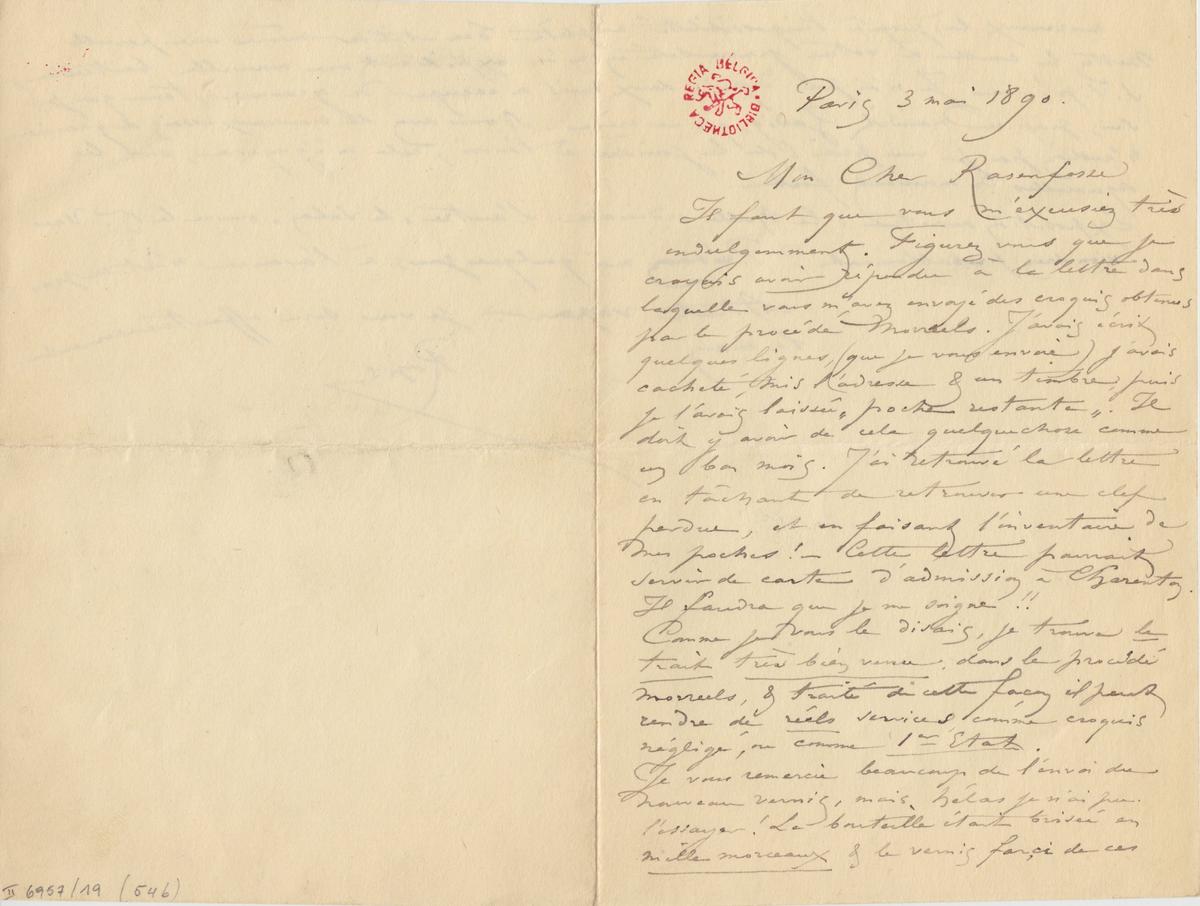 REGIA BELGICA • BIBLIOTHECA
Paris 3 mai 1890.
Mon Cher Rasenfosse
Il faut que vous m'excusiez très
indulgemment. Figurez vous que je
croyais avoir répondu à la lettre dans
laquelle vous m'avez envoyé des croquis obtenus
par le procédé Morreels. J'avais écrit
quelques lignes, (que je vous envoie) j'avais
cacheté, mis l'adresse & un timbre, puis
je l'avais laissée „ poche restante „. Il
doit y avoir de cela quelquechose comme
un bon mois. J'ai retrouvé la lettre
en tâchant de retrouver une clef
perdue, et en faisant l'inventaire de
mes poches ! – Cette lettre pourrait
servir de carte d'admission à Charenton.
Il faudra que je me soigne !!
Comme je vous le disais, je trouve le
trait très bien venu, dans le procédé
Morreels, & traité de cette façon il peut
rendre de réels services comme croquis
négligé, ou comme 1er Etat.
Je vous remercie beaucoup de l'envoi du
nouveau vernis, mais, hélas je n'ai pu
l'essayer ! La bouteille était brisée en
mille morceaux & le vernis farçi de ces
II 6957/19 (546)